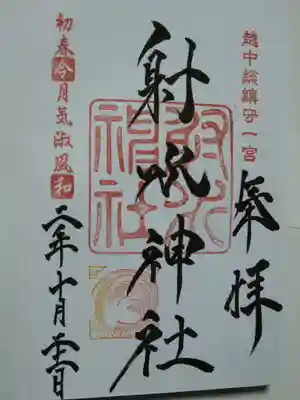 越中総鎮守一宮
奉拝
射水神社
射水神社
初春令月気淑風和
二年十月二十一日